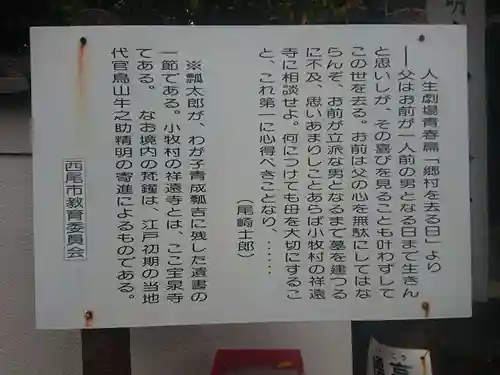 人生劇場青春篇「郷村を去る日」より
―父はお前が一人前の男となる日まで生きん
と思いしが、その喜びを見ることも叶わずして
この世を去る。お前は父の心を無駄にしてはな
らんぞ、お前が立派な男となるまで墓を建つる
に不及、思いあまりしことあらば小牧村の祥遠
寺に相談せよ。何につけても母を大切にするこ
と、これ第一に心得べきことなり、……
(尾崎士郎)
※瓢太郎が、わが子青成瓢吉に残した遺書の
一節である。小牧村の祥遠寺とは、ここ宝泉寺
である。 なお境内の梵鐘は、江戸初期の当地
代官鳥山牛之助精明の寄進によるものである。
西尾市教育委員会